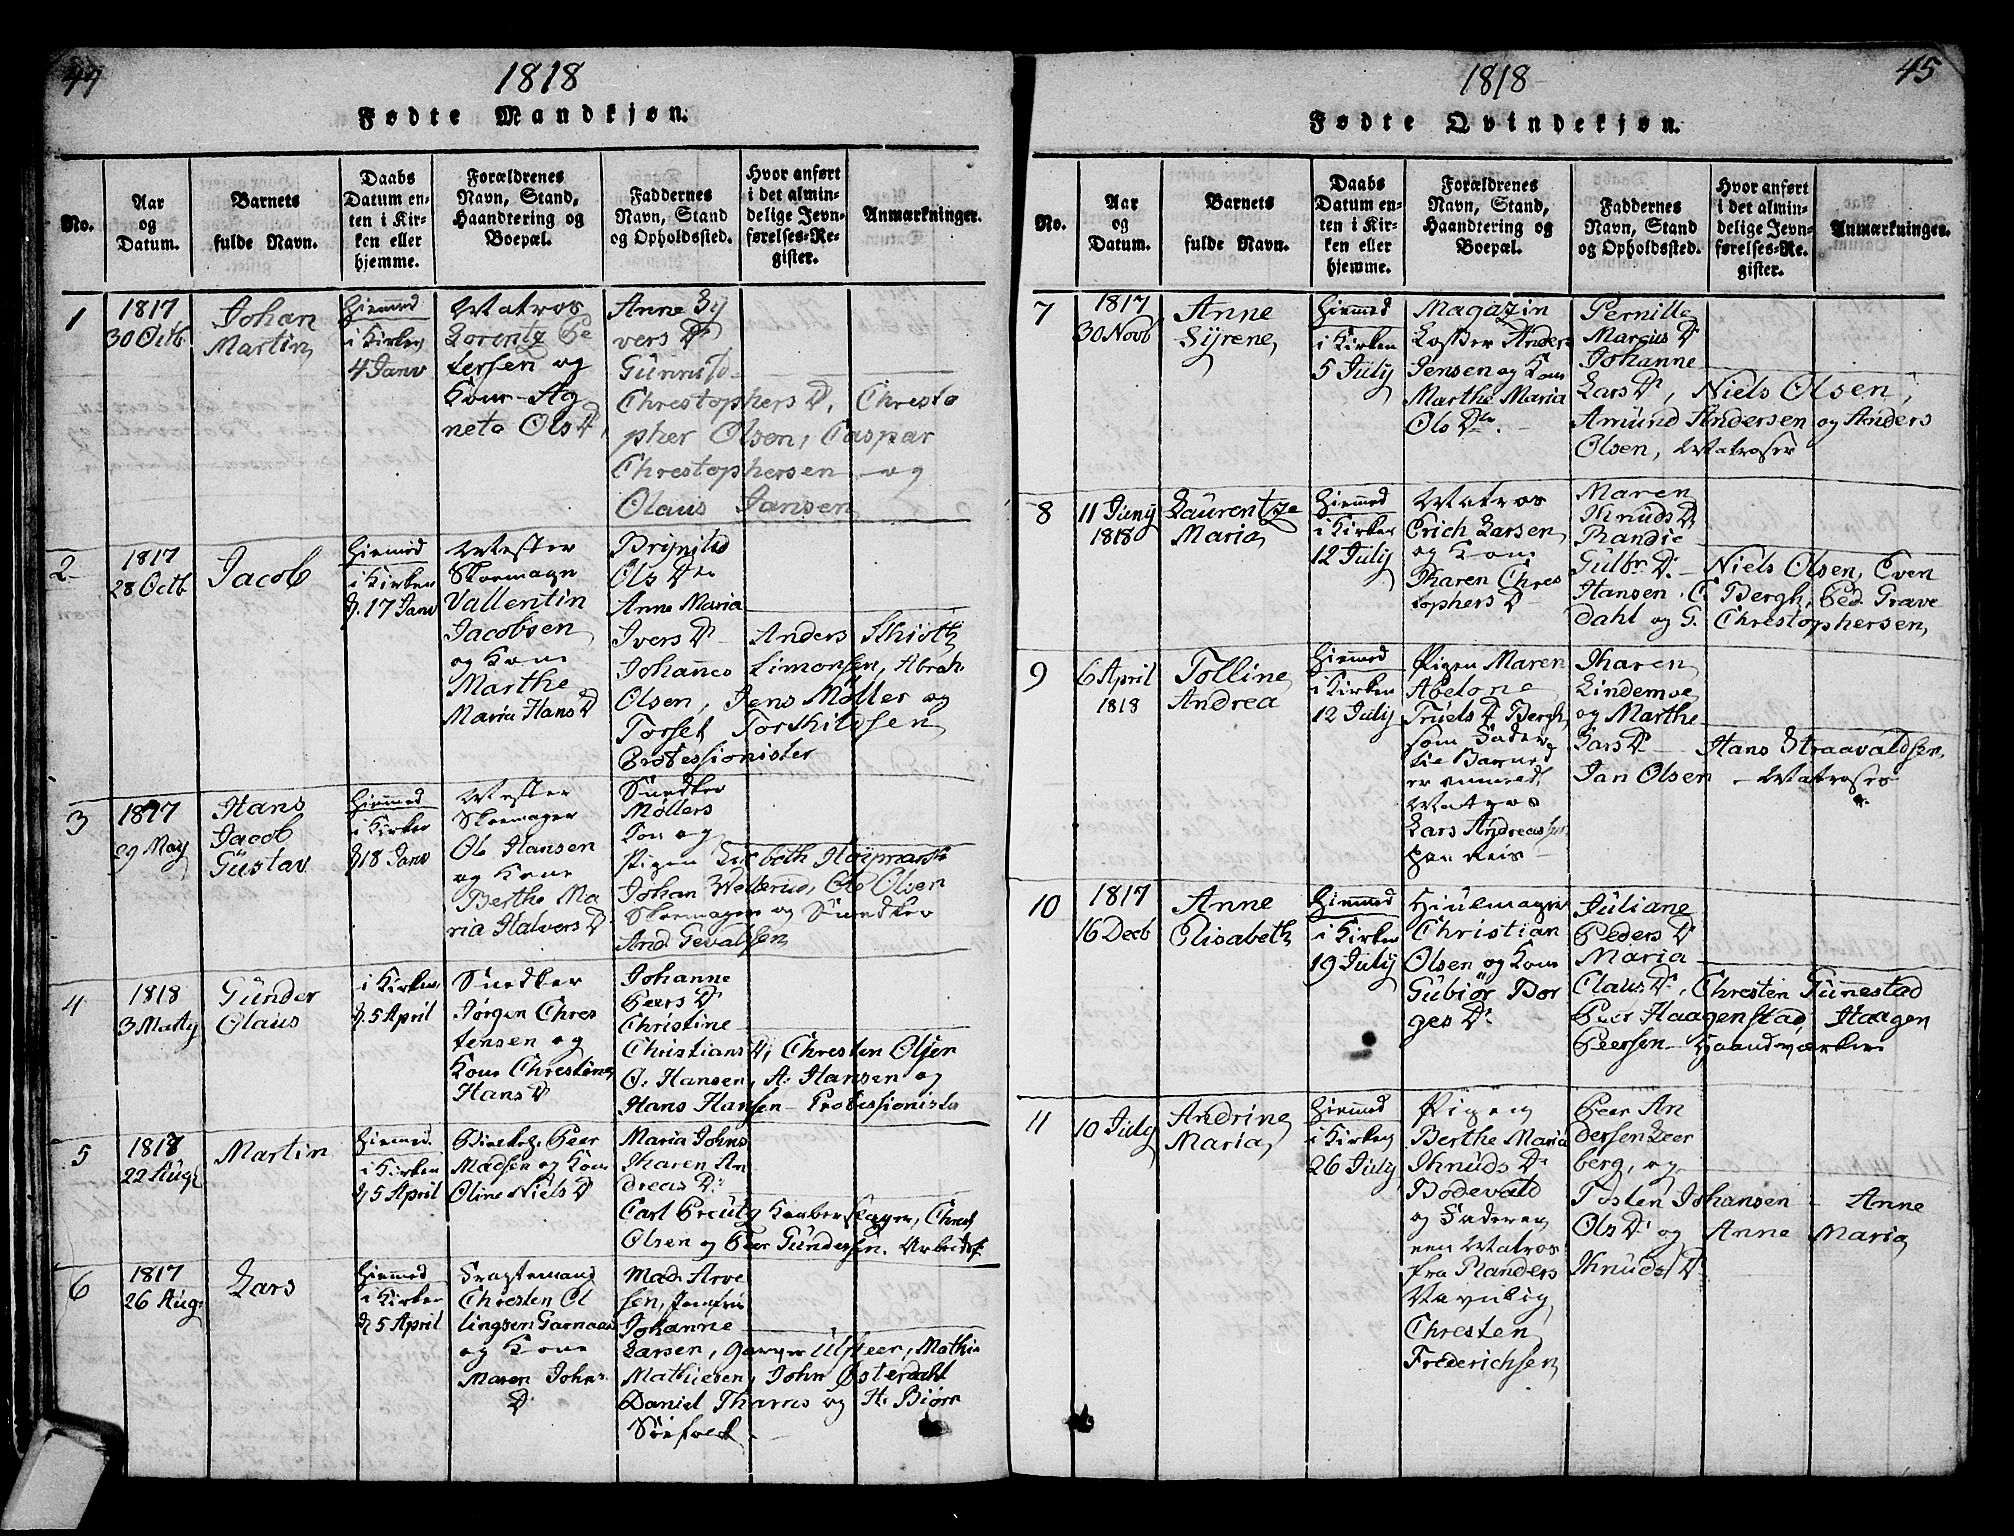 44
1818
Fødte Mandkjøn.
No.
Aar
og
Datum.
Barnets
fulde Navn.
Daabs
Datum en-
ten i Kir-
ken eller
hjemme.
Forældrenes
Navn, Stand,
Haandtering og
Boepæl.
Faddernes
Navn, Stand
og Opholdssted.
Hvor anført
i det almin-
delige Jevn-
førelses-Re-
gister.
Anmærkninger.
1
1817
30 Octb
Johan
Martin
Hiemmed
i Kirken
4 Janv
Matros
Lorentz Pe
tersen og
Kone Ag
neta Ols D.
Anne Sy
vers D.
Gunnild
Christophers D. Christo
pher Olsen, Caspar
Chrestophersen og
Olaus Jansen
2
1817
28 Octb
Jacob
Hiemmed
i Kirken
d. 17 Janv
Mester
Skoemager
Vallentin
Jacobsen
og Kone
Marthe
Maria Hans D
Brynild
Ols D
Anne Maria
Ivers D Anders Schiøth
Johannes Simonsen, Abrah
Olsen, Jens Møller og
Torset Torkildsen
Professionister
3
1817
29 May
Hans
Jacob
Gustav
Hiemmed
i Kirken
d 18 Janv
Mester
Skoemager
Ole Hansen
og Kone
Berthe Ma
ria Halvers D
Snedker
Møllers
Kone og
Pigen Lisbeth Høymark
Johan Wetterud, Ole Olsen
Skoemager og Snedker
And. Gevaldsen
4
1818
3 Marty
Gunder
Olaus
i Kirken
d. 5 April
Snedker
Jørgen Chres
tensen og
Kone Chrestine
Hans D
Johanne
Peers D
Christine
Christians D, Chresten Olsen
O. Hansen, A. Hansen og
Hans Hansen Professionister
5
1817
22 Aug
Martin
Hiemmed
i Kirken
d 5 April
Peer
Madsen og Kone
Oline Niels D
Maria Johns
Karen An
dreas D.
Carl Preutz Kaaberslager, Chrest
Olsen og Peer Gundersen. Arbeidsf.
6
1817
26 Aug
Lars
Hiemmed
i Kirken
d 5 April
Fragtemand
Chresten El
lingsen Garnaas
og Kone
Maren Johns
D
Mad. Arve
sen, Jomfru
Johanne
Larsen, Garver Ulsteer, Mathis
Mathiesen, John Østerdahl
Daniel Thams og H. Biørn
Søefolk
1818
45
Fødte Qvindekjøn.
No.
Aar
og
Datum.
Barnets
fulde Navn.
Daabs
Datum en-
ten i Kir-
ken eller
hjemme.
Forældrenes
Navn, Stand,
Haandtering og
Boepæl.
Faddernes
Navn, Stand
og Opholdssted.
Hvor anført
i det almin-
delige Jevn-
førelses-Re-
gister.
Anmærkninger.
7
1817
30 Novb
Anne
Syrene
Hiemmed
i Kirken
5 July
Magazin
Anders
Jensen og Kone
Marthe Maria
Ols D
Pernille
Marcus D
Johanne
Lars D, Niels Olsen,
Amund Andersen og Anders
Olsen, Matroser
8
11 Juny
1818
Laurentze
Maria
Hiemmed
i Kirken
12 July
Matros
Erich Larsen
og Kone
Karen Chres
tophers D
Maren
Knuds D
Randie
Gulbr. D. Niels Olsen, Even
Hansen, C. Bergh, Ped. Grave
Dahl og G. Chrestophersen
9
6 April
1818
Tolline
Andrea
Hiemmed
i Kirken
12 July
Pigen Maren
Abelone
Truels D Bergh
som Fader
til Barnet
er anmeldt
Matros
Lars Andreassen
paa Reis
Karen
Lindemoe
og Marthe
Lars D Hans Straavaldsen
Jan Olsen Matroser
10
1817
16 Decb
Anne
Elisabeth
Hiemmed
i Kirken
19 July
Hiulmager
Christian
Olsen og Kone
Gubiør Bør
ges D.
Juliane
Peders D
Maria
Claus D, Chresten Gunestad
Peer Haagenstad, Haagen
Peersen Haandværker
11
10 July
Andrine
Maria
Hiemmed
i Kirken
26 July
Pigen
Berthe Maria
Knuds D
Bodevald
og Faderen
een Matros
fra Randers
Navnlig
Chresten
Frederichsen
Peer An
dersen Leer
berg, og
Tosten Johansen Anne
Ols D og Anne Maria
Knuds D